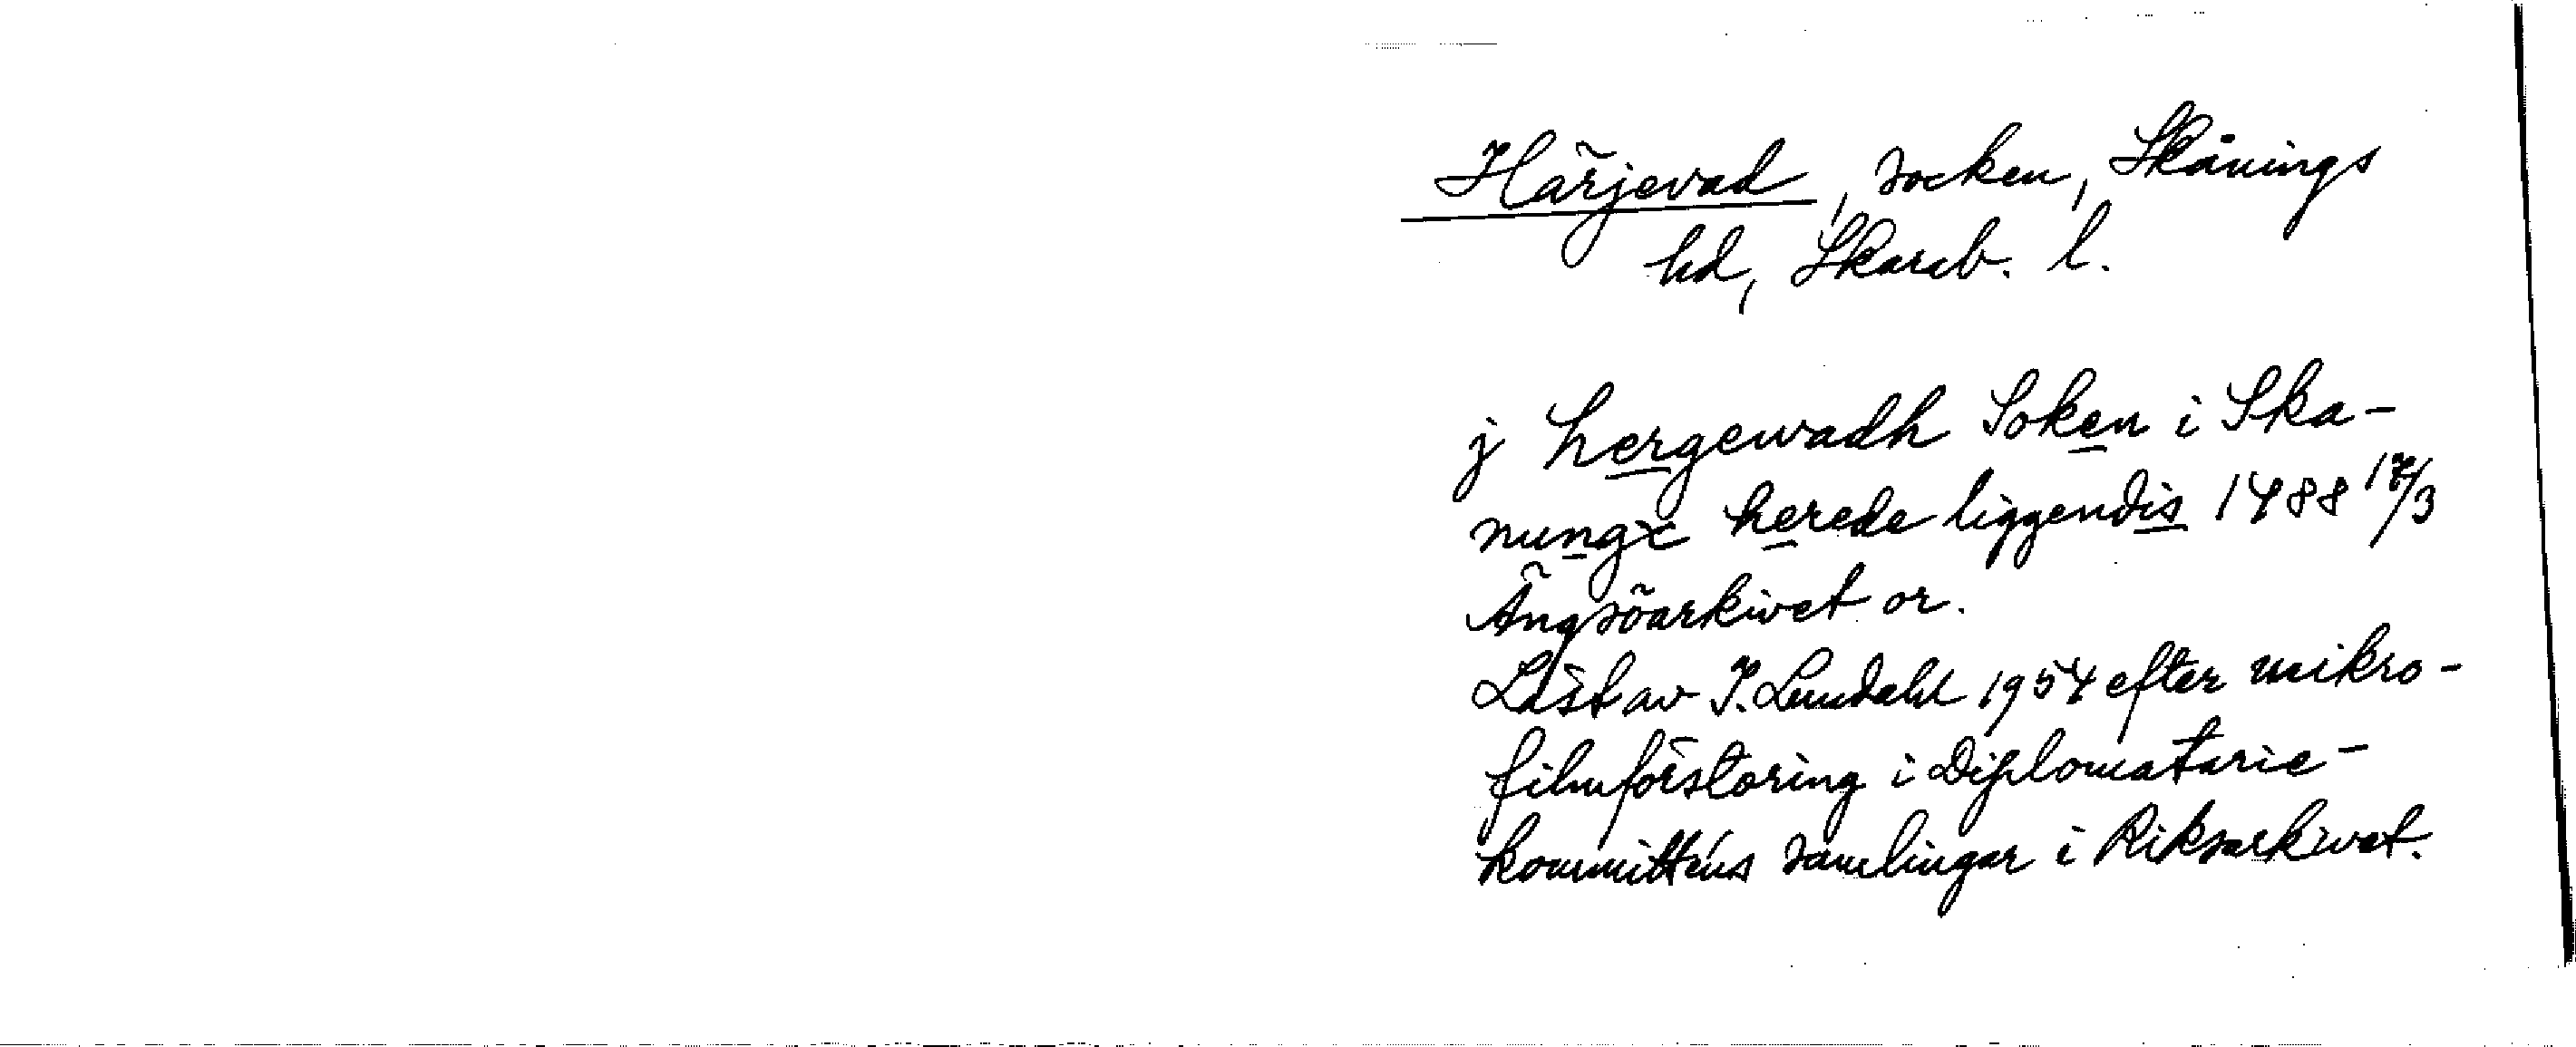 Härjevad, socken, Skånings
hd, Skarab. l.
j hergewadh Soken i Ska-
nungx herede liggendis 1488 17/3
Ängsöarkivet or.
Läst av I. Lundahl 1954 efter mikro-
filmförstoring i Diplomatarie-
kommitténs samlingar i Riksarkivet.